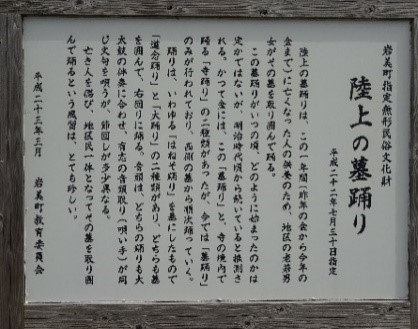 岩美町指定無形民俗文化財
陸上の墓踊り
平成二十二年七月三十日指定
陸上の墓踊りは、この一年間（昨年の盆から今年の
盆まで）に亡くなった人の供養のため、地区の老若男
女がその墓を取り囲んで踊る。
この墓踊りがいつの頃、どのように始まったのかは
定かではないが、明治時代頃から続いていると推測さ
れる。かつて盆には、この「墓踊り」と、寺の境内で
踊る「寺踊り」の二種類があったが、今では「墓踊り」
のみが行われており、西側の墓から順次踊っていく。
踊りは、いわゆる「はねそ踊り」を基にしたもので
「道念踊り」と「大踊り」の二種類があり、どちらも墓
を囲んで、右回りに踊る。音頭は、どちらの踊りも大
太鼓の伴奏に合わせ、有志の音頭取り（唄い手）が同
じ文句を唄うが、節回しが多少異なる。
亡き人を偲び、地区民一体となってその墓を取り囲
んで踊るという風習は、とても珍しい。
平成二十三年三月
岩美町教育委員会